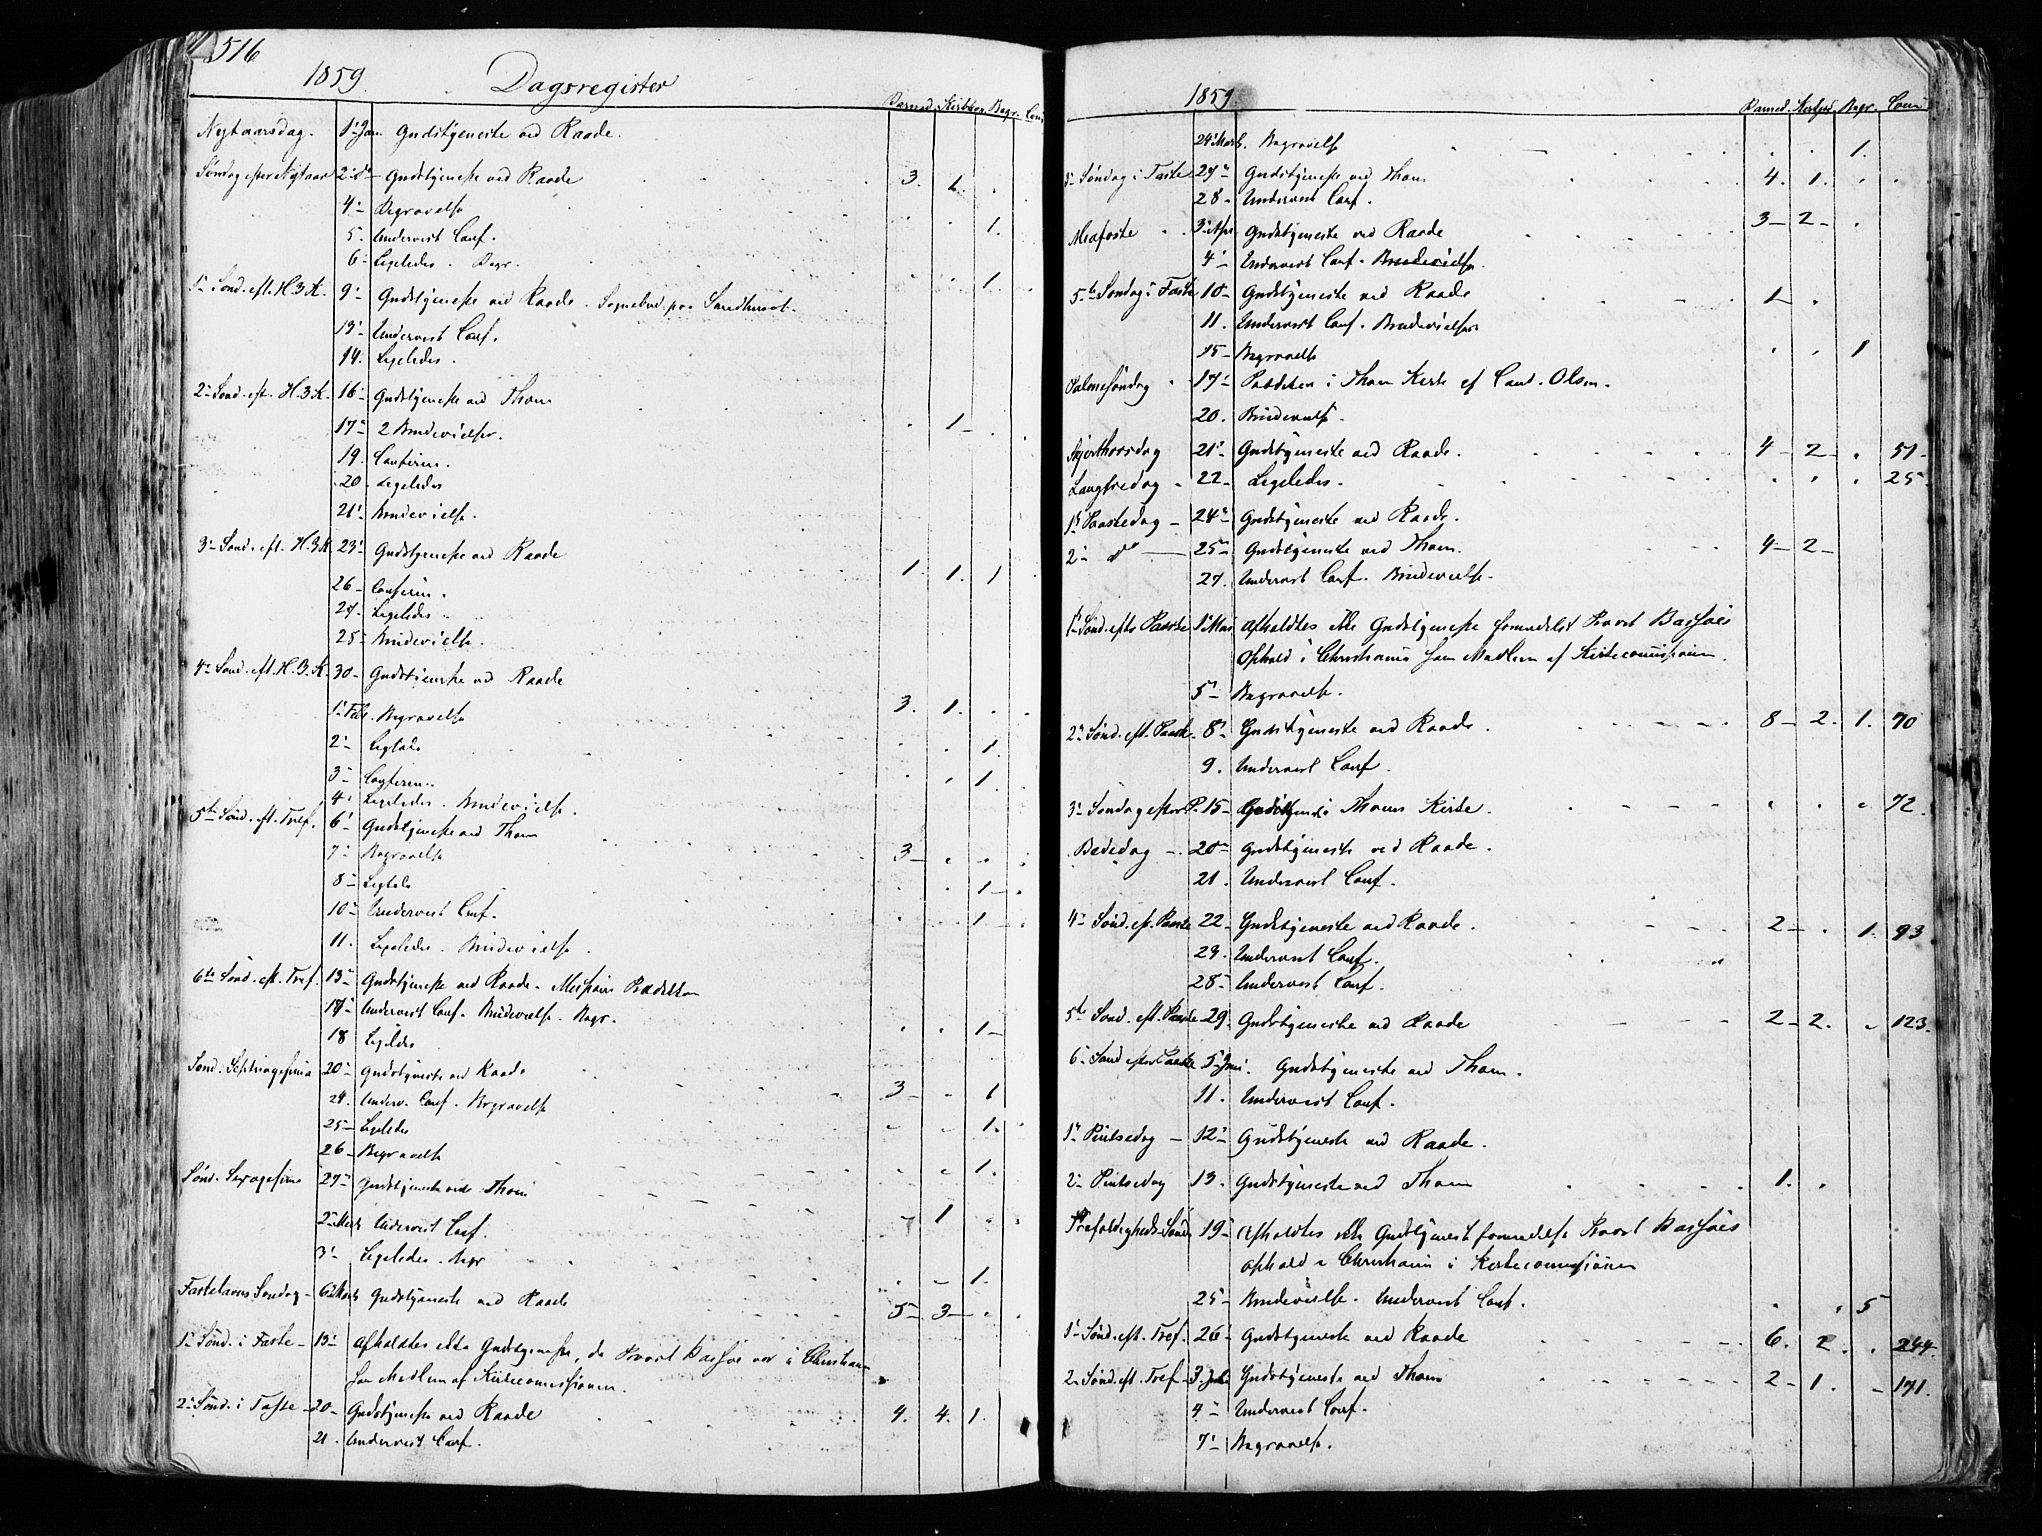 516
1859. Dagsregister
Barned. Kirkkon. Begr. Com
Nytaarsdag. 1' Jan. Gudstjeneste ved Raade.
Søndag efter Nytaar 2' do Gudstjeneste ved Raade 3. 1.
4' Begravelse 1.
5. Undervist Conf.
6' Ligeledes. Begr. 1.
1' Sønd. eft. H.3.K. 9' Gudstjeneste ved Raade. Sognebud paa
13' Undervist Conf.
14. Ligeledes.
2' Sønd. eft. H.3K. 16' Gudstjeneste ved Thom 1
17' 2 Brudevielser.
19. Confirm.
20. Ligeledes
21' Brudevielse.
3' Sønd. eft. H.3.K. 23' Gudstjeneste ved Raade 1. 1. 1
26 Confirm.
27. Ligeledes.
28 Brudevielse.
4' Sønd. eft. H.3.K. 30 Gudstjeneste ved Raade 3. 1.
1' Febr. Begravelse 1.
2' Ligtale 1.
3' Confirm.
4' Ligeledes. Brudevielse.
5te Sønd. eft. Tref. 6' Gudstjeneste ved Thom 3
7' Begravelse 1
8' Ligtale 1
10' Undervist Conf.
11. Ligeledes. Brudevielse.
6te Sønd. eft. Tref. 13' Gudstjeneste ved Raade. Missions Prædiken
17' Undervist Conf. Brudevielse. Begr. 1
18 Ligeledes
Sønd. Septuagesima 20' Gudstjeneste ved Raade 3 1
24. Underv. Conf. Begravelse 1.
25 Ligeledes
26 Begravelse 1.
Sønd. Sexagesima 27' Gudstjeneste ved Thom 1
2' Marts Undervist Conf.
3' Ligeledes. Begr 1.
Fastelavns Søndag 6' Marts Gudstjeneste ved Raade 5 3
1' Sønd. i Faste 13' Afholdtes ikke Gudstjeneste, da Provst Bassøe var i Christiania
som Medlem af Kirkecommissionen.
2' Sønd. i Faste 20 Gudstjeneste ved Raade 4. 4. 1.
21. Undervist Conf.
1859
Barned. Begr. Com
24' Marts. Begravelse 1.
Søndag i Faste 27' Gudstjeneste ved Thom 4. 1.
28 Undervist Conf.
Midfaste 3' Apr. Gudstjeneste ved Raade 3 2
4' Undervist Conf. Brudevielse.
5te Søndag i Faste 10 Gudstjeneste ved Raade 1
11. Undervist Conf. Brudevielser
15 Begravelse 1
Palmesøndag 17' Prædiken i Thom Kirke af Cand. Olsen.
20. Brudevielse.
Skjærthorsdag 21' Gudstjeneste ved Raade. 4 2 51
Langfredag 22 Ligeledes. 25
1' Paaskedag 24' Gudstjeneste ved Raade.
2' do 25' Gudstjeneste ved Thom. 4 2
27. Undervist Conf. Brudevielse.
1' Sønd. efter Paaske 1' Mai Afholdtes ikke Gudstjeneste formedelst Provst Bassøes
Ophold i Christiania som Medlem af Kirkecommissionen.
5' Begravelse.
2' Sønd. eft. Paaske 8' Gudstjeneste ved Raade. 8 2. 1. 70
9. Undervist Conf.
3' Søndag efter P. 15 Gudstjeneste i Thoms Kirke. 72.
Bededag 20 Gudstjeneste ved Raade.
21. Undervist Conf.
4' Sønd. eft. Paaske 22 Gudstjeneste ved Raade. 2 1. 93
Undervist Conf.
28 Undervist Conf.
5te Sønd. eft. Paaske 29. Gudstjeneste ved Raade 2 2. 123.
6' Sønd efter Paaske 5' Juni. Gudstjeneste ved Thom.
11. Undervist Conf.
1' Pintsedag 12' Gudstjeneste ved Raade.
2' Pintsedag 13. Gudstjeneste ved Thom 1.
Trefoldigheds Sønd 19 Afholdtes ikke Gudstjeneste formedelst Provst Bassøes
Ophold i Christiania i Kirkecommissionen
25 Brudevielse. Undervist Conf. 5
1' Sønd. eft. Tref. 26 Gudstjeneste ved Raade 6. 2.
2' Sønd. eft. Tref 3' Juli Gudstjeneste ved Thom 2 1. 171.
4' Undervist Conf.
7' Begravelse.